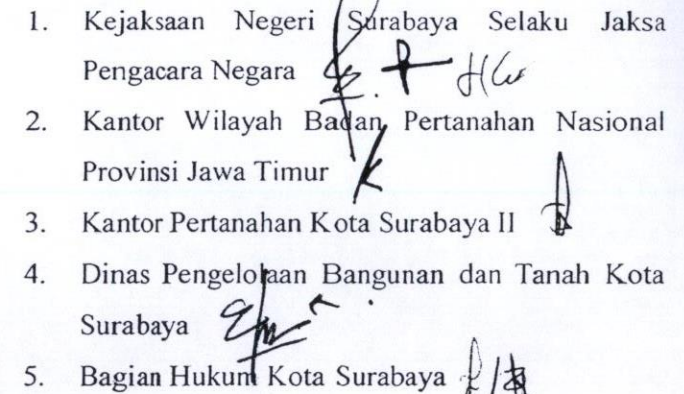 1. Kejaksaan Negeri Surabaya Selaku Jaksa
Pengacara Negara
2. Kantor Wilayah Badan Pertanahan Nasional
Provinsi Jawa Timur
3. Kantor Pertanahan Kota Surabaya II
4. Dinas Pengelolaan Bangunan dan Tanah Kota
Surabaya
5. Bagian Hukum Kota Surabaya